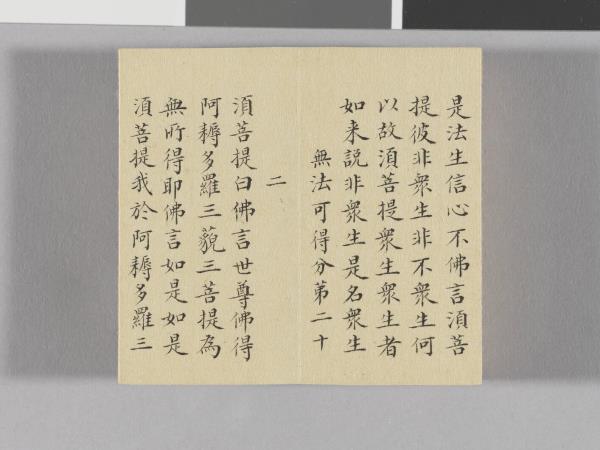 是法生信心不佛言須菩
提彼非衆生非不衆生何
以故須菩提衆生衆生者
如来説非衆生是名衆生
無法可得分第二十
二
須菩提白佛言世尊佛得
阿耨多羅三藐三菩提為
無所得耶佛言如是如是
須菩提我於阿耨多羅三